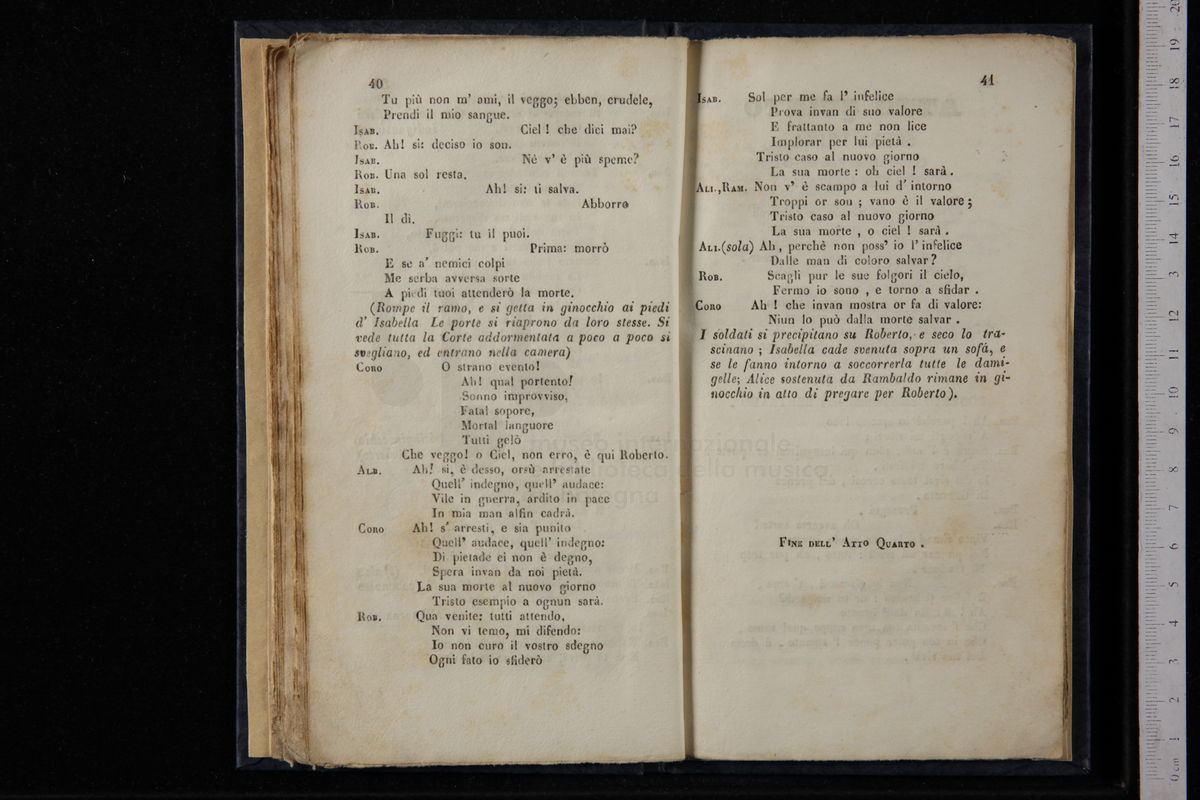 40
Tu più non m' ami, il veggo; ebben, crudele,
Prendi il mio sangue.
Isab. Ciel ! che dici mai?
Rob. Ah! si: deciso io son.
Isab. Nè v' è più speme?
Rob. Una sol resta.
Isab. Ah! si: ti salva.
Rob. Abborro
Il dì.
Isab. Fuggi: tu il puoi.
Rob. Prima: morrò
E se a' nemici colpi
Me serba avversa sorte
A piedi tuoi attenderò la morte.
(Rompe il ramo, e si getta in ginocchio ai piedi
d' Isabella Le porte si riaprono da loro stesse. Si
vede tutta la Corte addormentata a poco a poco si
svegliano, ed entrano nella camera)
Coro O strano evento!
Ah! qual portento!
Sonno improvviso,
Fatal sopore,
Mortal languore
Tutti gelò
Che veggo! o Ciel, non erro, è qui Roberto.
Alb. Ah! si, è desso, orsù arrestate
Quell' indegno, quell' audace:
Vile in guerra, ardito in pace
In mia man alfin cadrà.
Coro Ah! s' arresti, e sia punito
Quell' audace, quell' indegno:
Di pietade ei non è degno,
Spera invan da noi pietà.
La sua morte al nuovo giorno
Tristo esempio a ognun sarà.
Rob. Qua venite: tutti attendo,
Non vi temo, mi difendo:
Io non curo il vostro sdegno
Ogni fato io sfiderò
41
Isab. Sol per me fa l' infelice
Prova invan di suo valore
E frattanto a me non lice
Implorar per lui pietà .
Tristo caso al nuovo giorno
La sua morte : oh ciel ! sarà .
Ali.,Ram. Non v' è scampo a lui d' intorno
Troppi or son ; vano è il valore ;
Tristo caso al nuovo giorno
La sua morte , o ciel ! sarà .
Ali.(sola) Ah , perchè non poss' io l' infelice
Dalle man di coloro salvar ?
Rob. Scagli pur le sue folgori il cielo,
Fermo io sono , e torno a sfidar .
Coro Ah ! che invan mostra or fa di valore:
Niun lo può dalla morte salvar .
I soldati si precipitano su Roberto, e seco lo tra-
scinano ; Isabella cade svenuta sopra un sofà, e
se le fanno intorno a soccorrerla tutte le dami-
gelle; Alice sostenuta da Rambaldo rimane in gi-
nocchio in atto di pregare per Roberto ).
Fine dell' Atto Quarto .
museo internazionale
della musica
0 cm 1 2 3 4 5 6 7 8 9 10 11 12 13 14 15 16 17 18 19 20